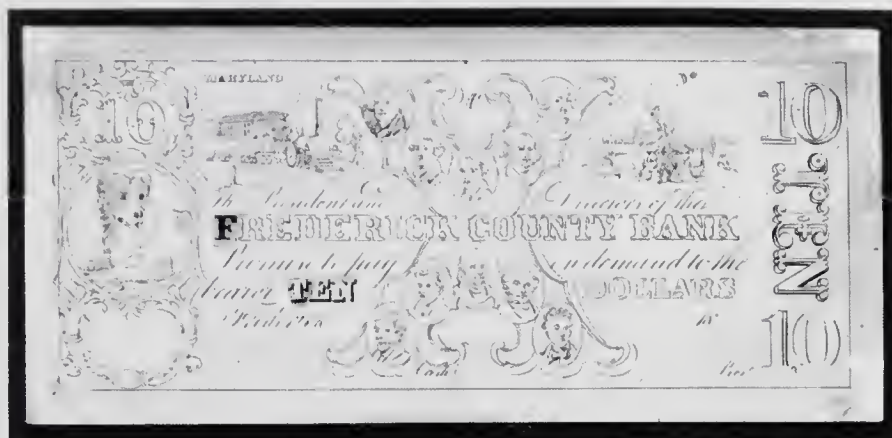 MARYLAND
10
10
President and Directors of the
FREDERICK COUNTY BANK
Promise to pay on demand to the
bearer TEN DOLLARS
Frederick
Cash Pres
TEN
10